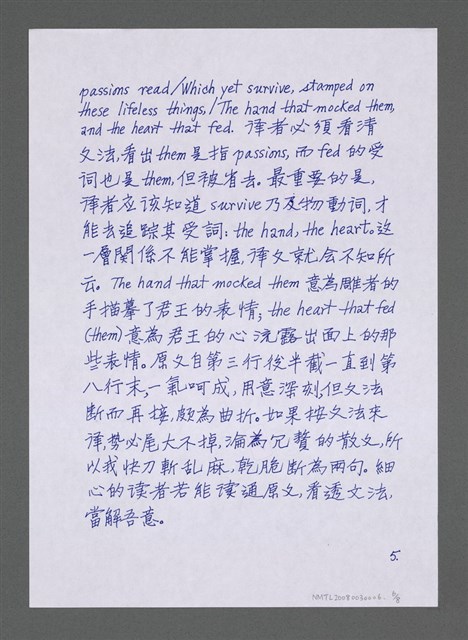 passions read/Which yet survive, stamped on
these lifeless things,/The hand that mocked them,
and the heart that fed. 译者必須看清
文法,看出them是指passions,而fed的受
词也是them,但被省去。最重要的是,
译者应该知道survive乃及物動词,才
能去追踪其受词:the hand, the heart。这
一層関係不能掌握,译文就会不知所
云。The hand that mocked them意為雕者的
手描摹了君王的表情;the heart that fed
(them)意為君王的心流露出面上的那
些表情。原文自第三行後半截一直到第
八行末,一氣呵成,用意深刻,但文法
断而再接,颇為曲折。如果按文法来
译,势必尾大不掉,淪為冗贅的散文,所
以我快刀斬乱麻,乾脆断為兩句。細
心的读者若能读通原文,看透文法,
當解吾意。
5.
NMTL20080030006.